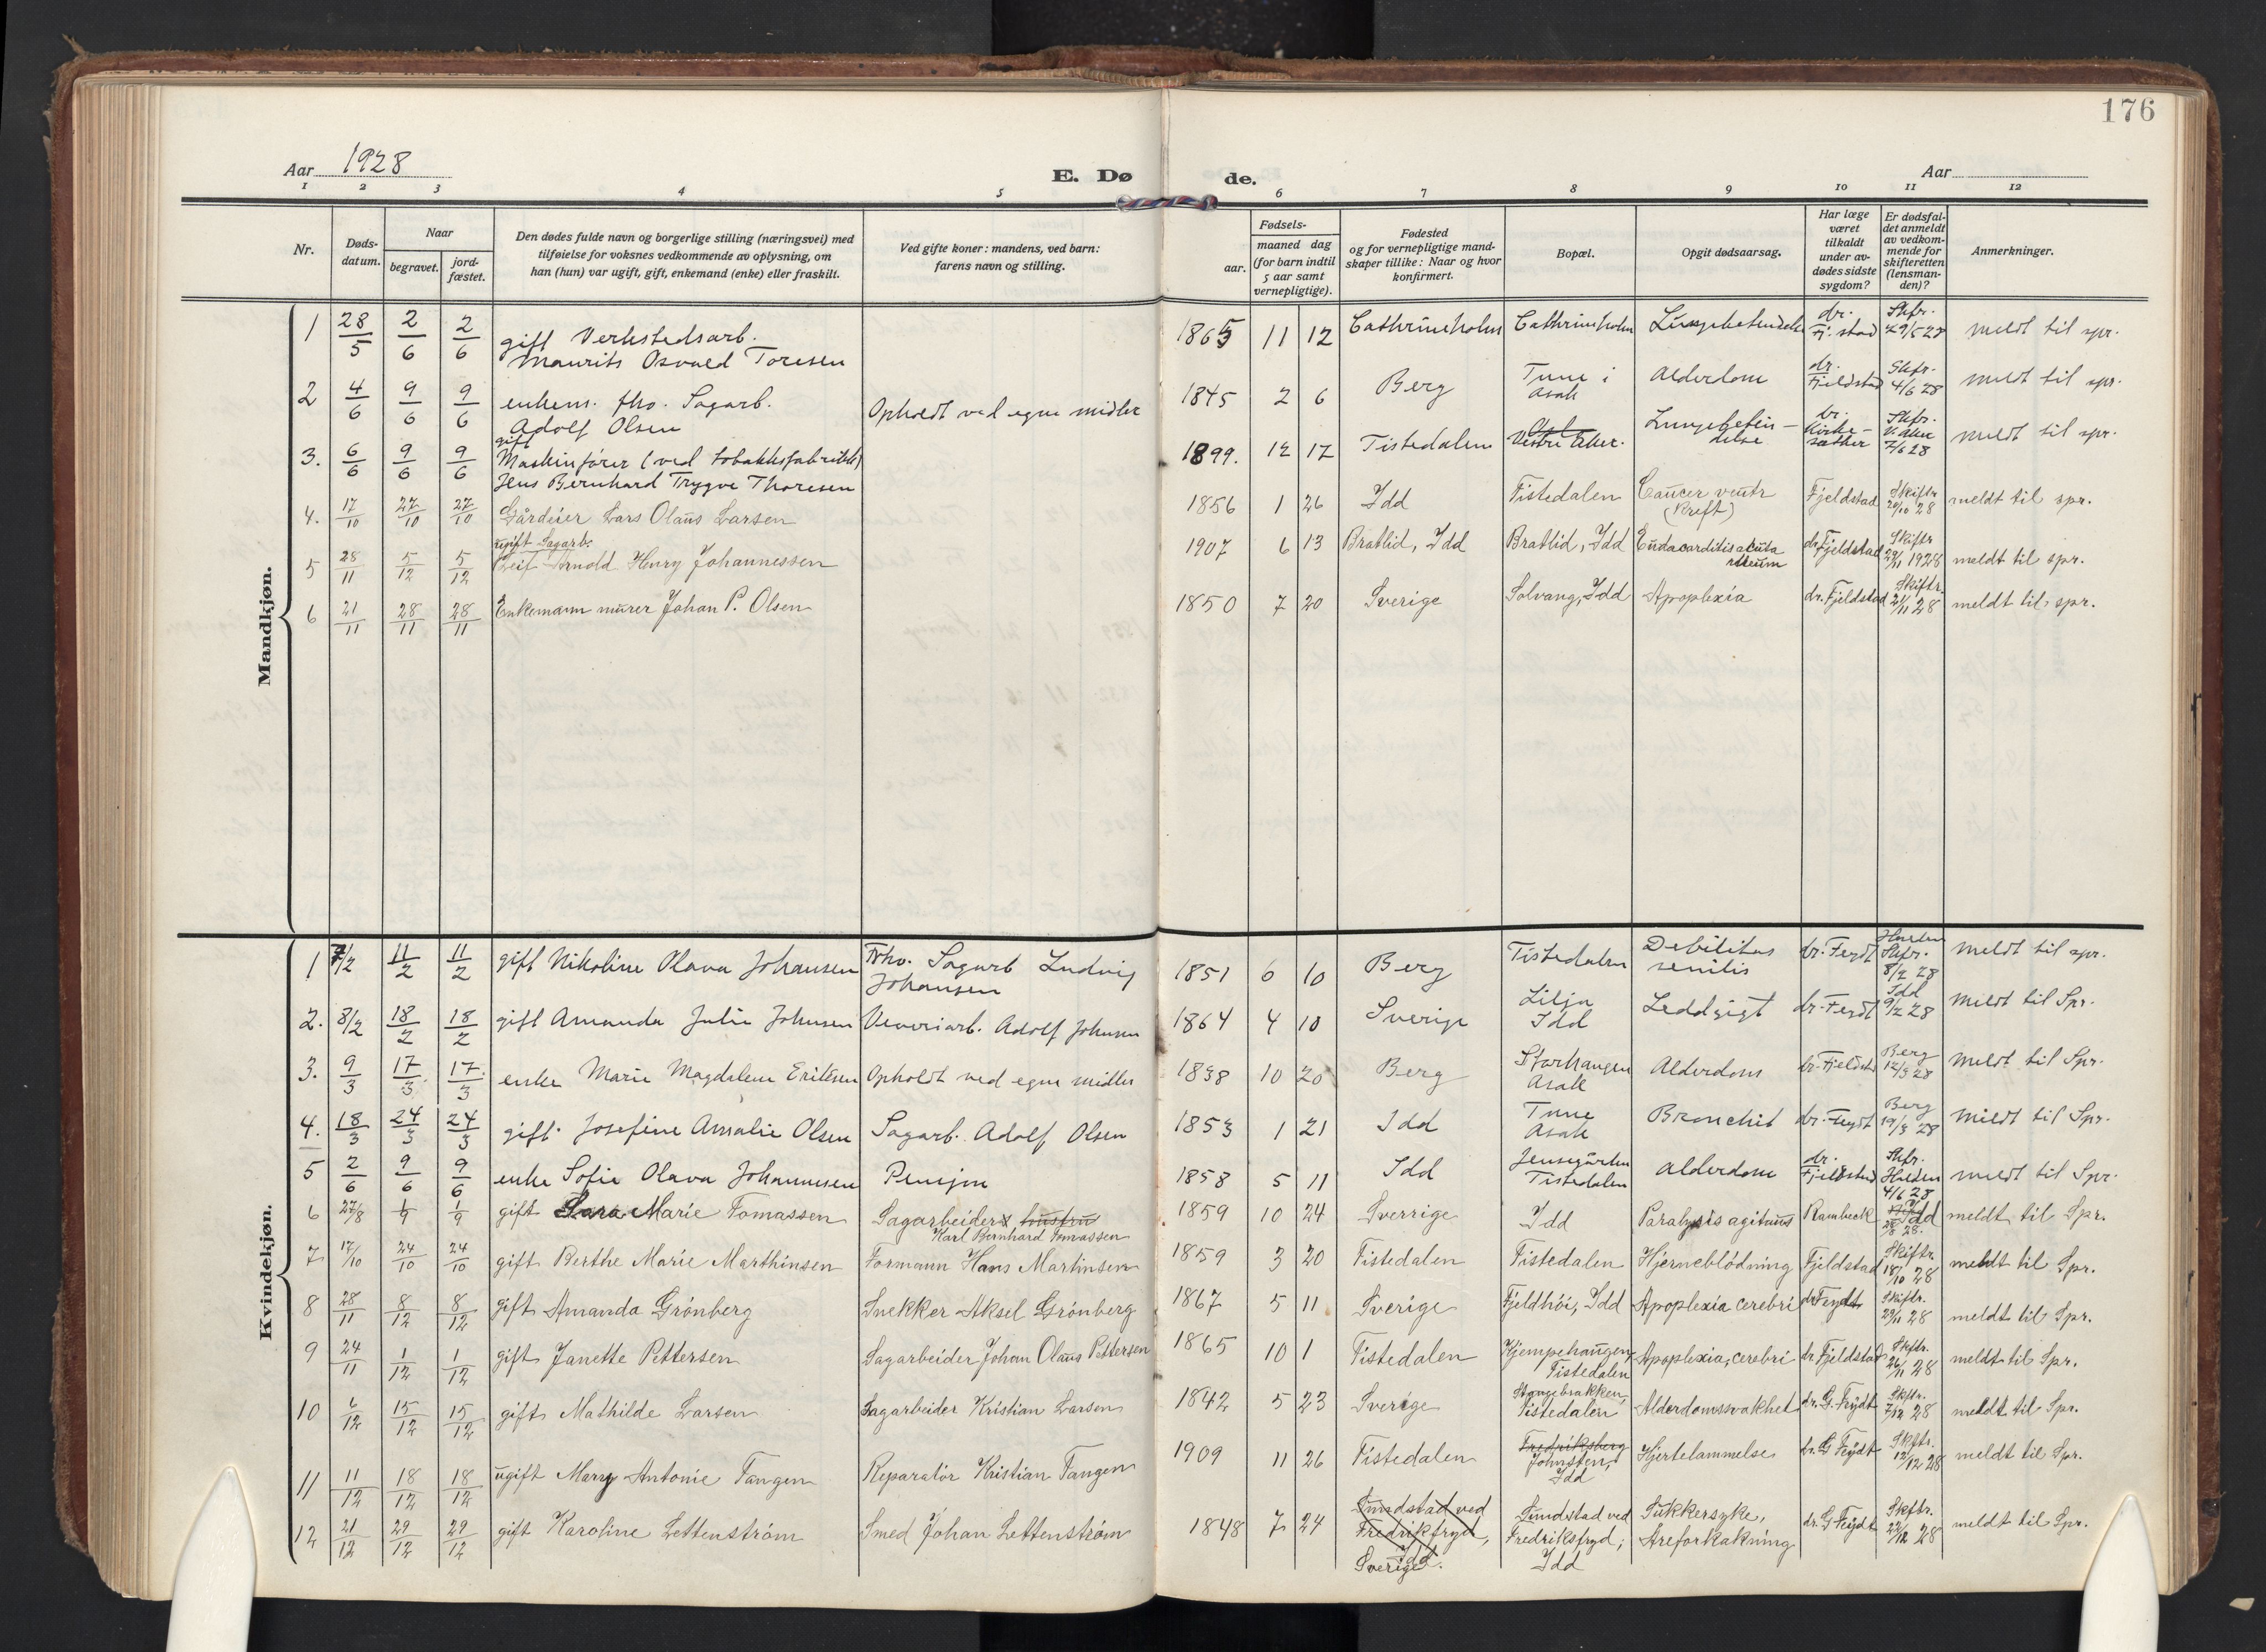 176
Aar 1928
E. Døde.
Aar
1 2 3 4 5 6 7 8 9 10 11 12
Nr.
Døds-datum.
Naar
begravet.
jord-fæstet.
Den dødes fulde navn og borgerlige stilling (næringsvei) med
tilføielse for voksnes vedkommende av oplysning, om
han (hun) var ugift, gift, enkemand (enke) eller fraskilt.
Ved gifte koner: mandens, ved barn:
farens navn og stilling.
Fødsels-
aar.
maaned dag
(for barn indtil
5 aar samt
vernepligtige).
Fødested
og for vernepligtige mand-
skaper tillike: Naar og hvor
konfirmert.
Bopæl.
Opgit dødsaarsag.
Har læge
været
tilkaldt
under av-
dødes sidste
sygdom?
Er dødsfal-
det anmeldt
av vedkom-
mende for
skifteretten
(lensman-
den)?
Anmerkninger.
Mandkjøn.
1 28/5 2/6 2/6 gift Verkstedsarb. Maurits Osvald Toresen 1865 11 12 Cathrineholm Cathrineholm Lungebetendelse dr. Fj.stad Skfr. 29/5 28 meldt til spr.
2 4/6 9/6 9/6 enkem. fho. Sagarb. Adolf Olsen Opholdt ved egne midler 1845 2 6 Berg Tune i Asak Alderdom dr. Fjeldstad Skfr. 4/6 28 meldt til spr.
3. 6/6 9/6 9/6 gift Maskinfører (ved tobakksfabrikk) Jens Bernhard Trygve Thoresen 1899. 12 17 Tistedalen Vestre Aker. Lungebeten-delse dr. Kirke-sæther Skfr. V. Aker 7/6 28 meldt til spr.
4. 17/10 27/10 27/10 Gårdeier Lars Olaus Larsen 1856 1 26 Idd Tistedalen Cancer ventr (Kreft) Fjeldstad Skiftr 20/10 28 meldt til spr.
5 28/11 5/12 5/12 ugift Sagarb. Leif Arnold Henry Johannessen 1907 6 13 Bratlid, Idd Bratlid, Idd Endacarditis acuta rheum dr. Fjeldstad Skiftr 29/11 1928 meldt til spr.
6 21/11 28/11 28/11 Enkemann murer Johan P. Olsen 1850 7 20 Sverige Solvang, Idd Apoplexia dr. Fjeldstad Skiftr. 21/11 28 meldt til spr.
Kvindekjøn.
1 7/2 11/2 11/2 gift Nikoline Olava Johansen Fhv. Sagarb Ludvig Johansen 1851 6 10 Berg Tistedalen Debilitas senilis dr. Feydt Halden Skfr. 8/2 28 meldt til spr.
2. 8/2 18/2 18/2 gift Amanda Julie Johnsen Veveriarb. Adolf Johnsen 1864 4 10 Sverige Lilja Idd Leddgigt dr. Feydt Idd 9/2 28 meldt til Spr.
3. 9/3 17/3 17/3 enke Marie Magdalene Eriksen Opholdt ved egne midler 1838 10 20 Berg Storhaugen Asak Alderdom dr. Fjeldst. Berg 12/3 28 meldt til Spr.
4. 18/3 24/3 24/3 gift Josefine Amalie Olsen Sagarb. Adolf Olsen 1853 1 21 Idd Tune Asak Bronchit dr. Feydt Berg 19/3 28 meldt til Spr.
5 2/6 9/6 9/6 enke Sofie Olava Johannesen Pensjon 1858 5 11 Idd Jensegården Tistedalen Alderdom dr. Fjeldstad Skfr. Halden 4/6 28 meldt til Spr.
6 27/8 1/9 1/9 gift Sara Marie Tomassen Sagarbeiders hustru Karl Bernhard Tomassen 1859 10 24 Sverrige Idd Paralysis agitans Rambeck Idd 28/8 28. meldt til Spr.
7 17/10 24/10 24/10 gift Berthe Marie Marthinsen Formann Hans Martinsen 1859 3 20 Tistedalen Tistedalen Hjerneblødning Fjeldstad Skiftr. 18/10 28 meldt til Spr.
8 28/11 8/12 8/12 gift Amanda Grønberg Snekker Aksel Grønberg 1867 5 11 Sverige Fjeldhøi, Idd Apoplexia cerebri dr Feydt Skiftr. 29/11 28 meldt til Spr.
9 24/11 1/12 1/12 gift Janette Pettersen Sagarbeider Johan Olaus Pettersen 1865 10 1 Tistedalen Kjempehaugen, Tistedalen Apoplexia, cerebri dr. Fjeldstad Skftr. 26/11 28 meldt til Spr.
10 6/12 15/12 15/12 gift Mathilde Larsen Sagarbeider Kristian Larsen 1842 5 23 Sverige Stangebrakken, Tistedalen Alderdomssvakhet dr. G. Feydt Skftr. 7/12 28 meldt til Spr.
11 11/12 18/12 18/12 ugift Mary Antonie Tangen Reparatør Kristian Tangen 1909 11 26 Tistedalen Fredriksberg Johnsten, Idd Hjertelammelse dr. G Feydt Skftr. 12/12 28 meldt til Spr.
12 21/12 29/12 29/12 gift Karoline Lettenstrøm Smed Johan Lettenstrøm 1848 7 24 Sundstad ved Fredrikfryd, Idd Sverige. Sundstad ved Fredriksfryd, Idd Sukkersyke, Areforkakning dr. G Feydt Skftr. 22/12 28 meldt til Spr.